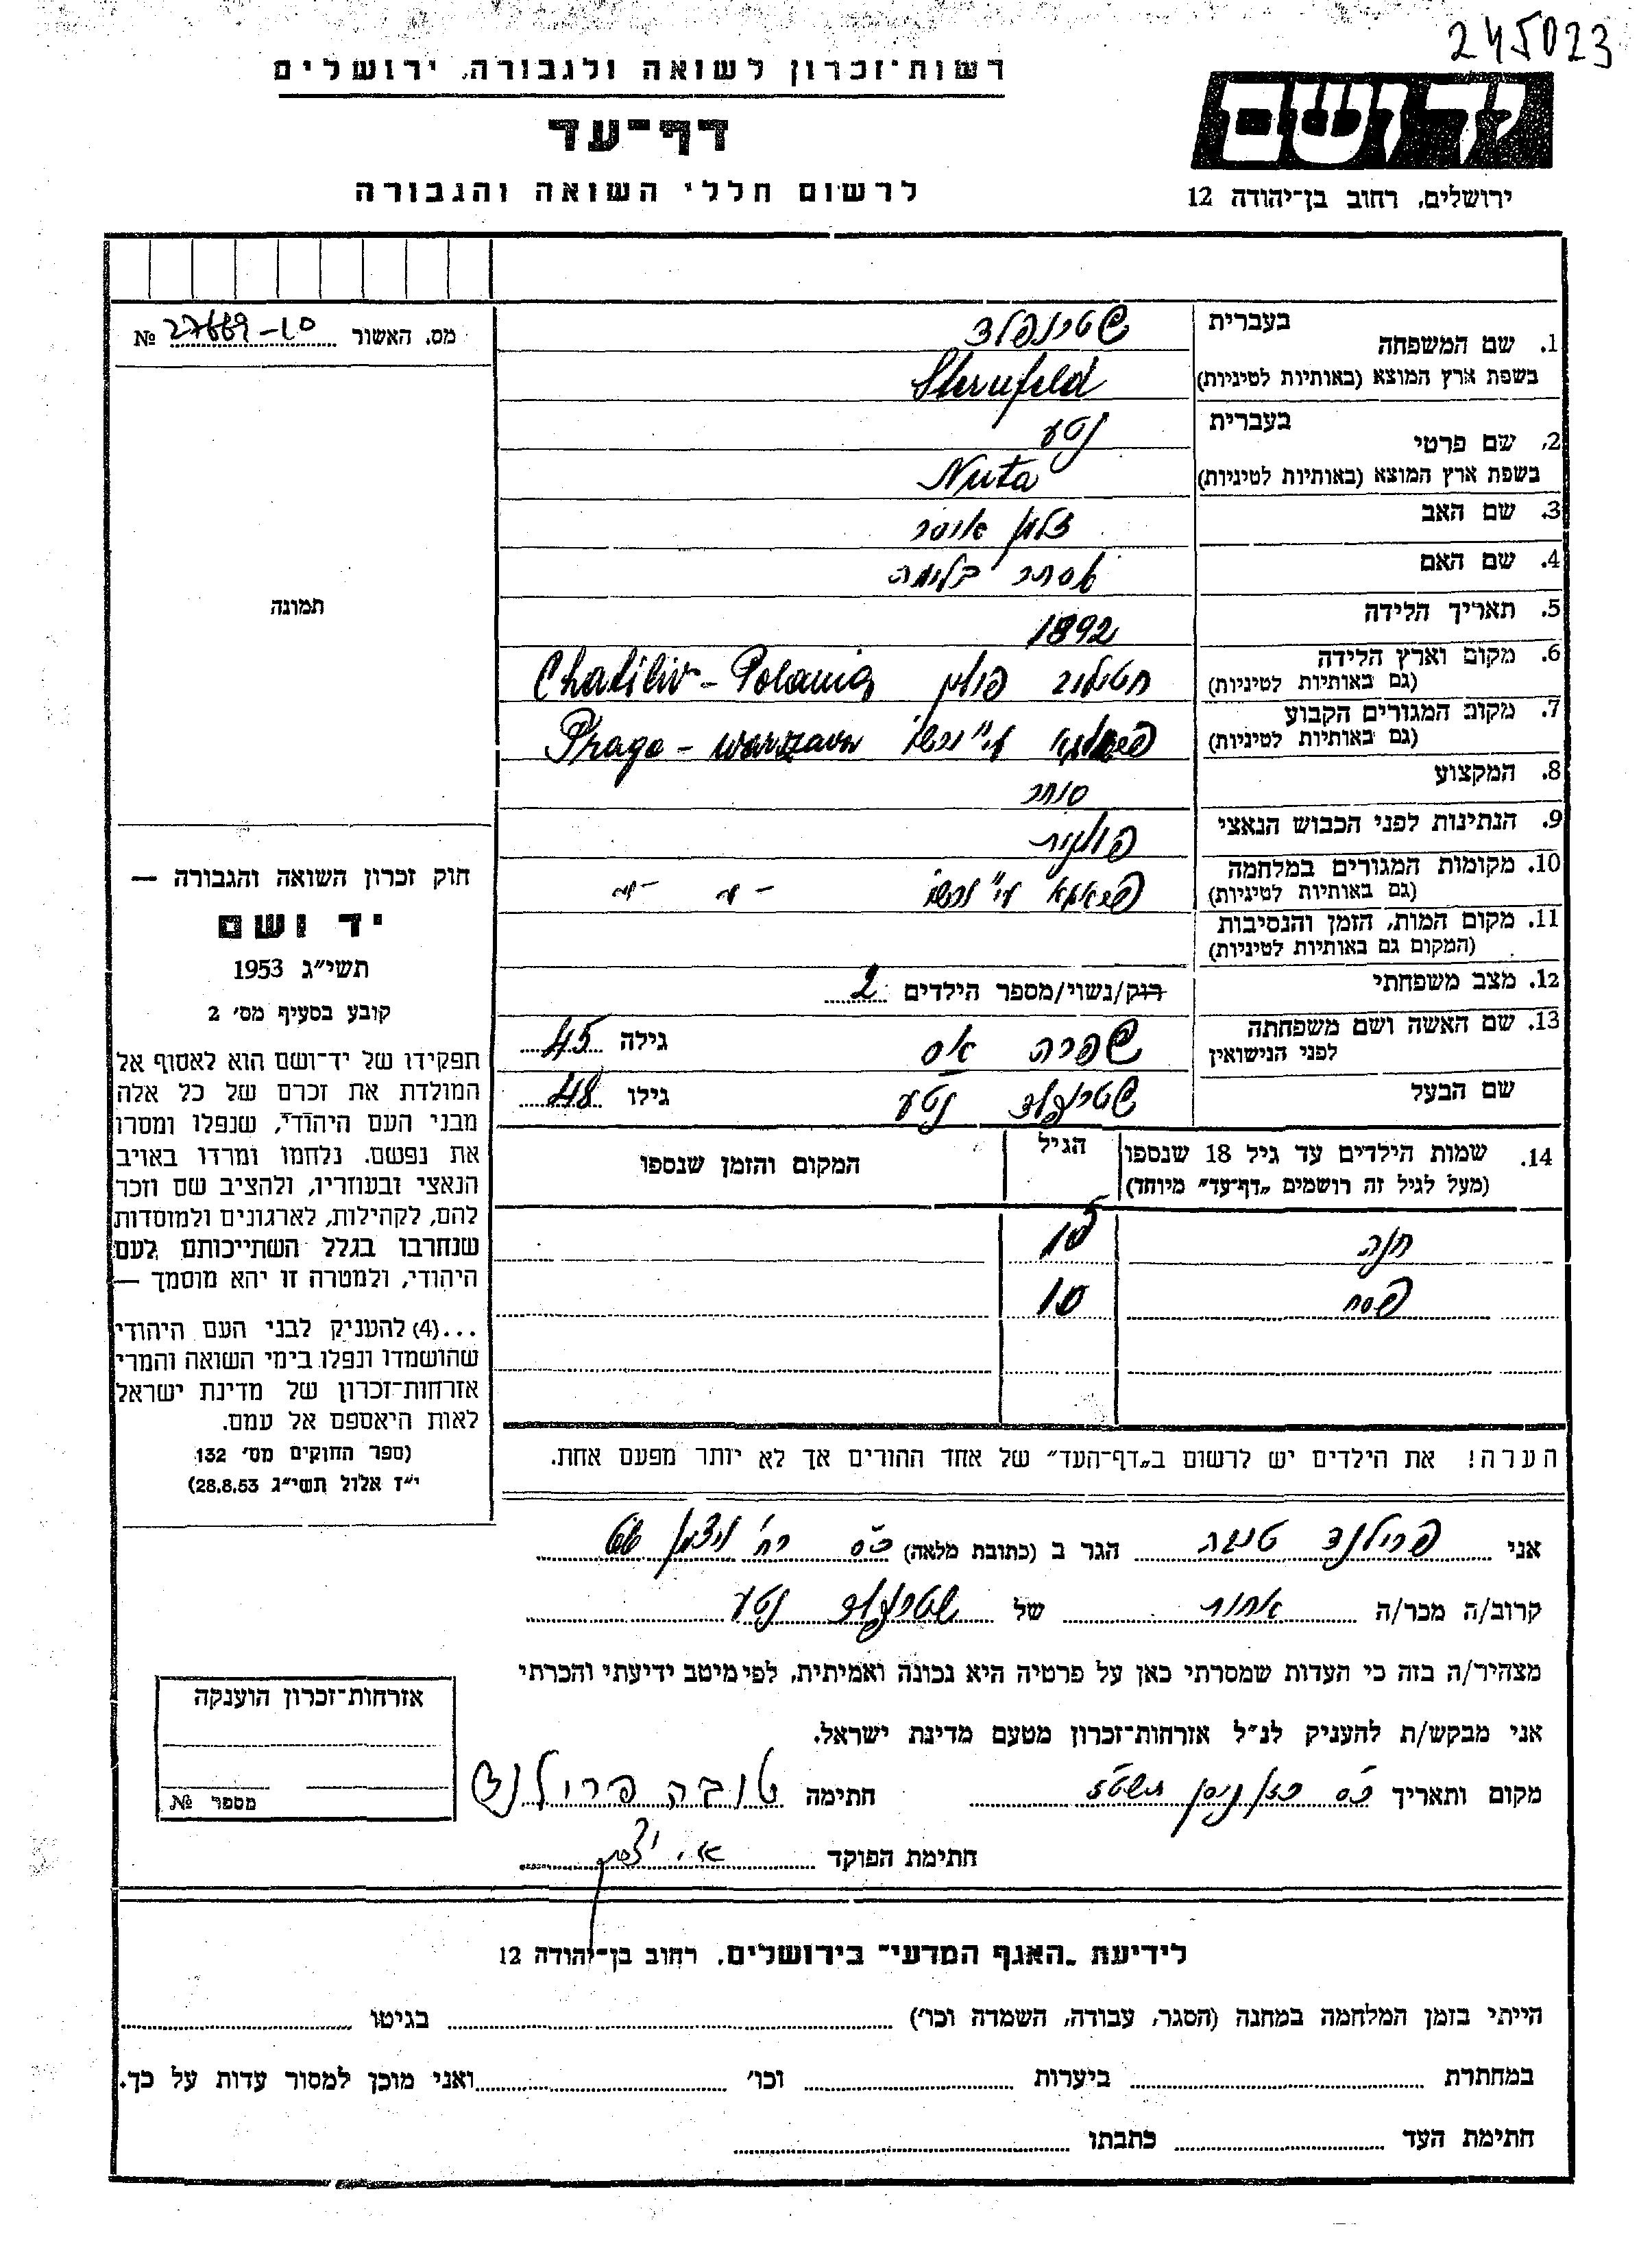 245023
רשות־זכרון לשואה ולגבורה, ירושלים
דף־עד
לרשום חללי השואה והגבורה
יד ושם
ירושלים, רחוב בן־יהודה 12
מס. האשור 27669-10 №
תמונה
חוק זכרון השואה והגבורה —
יד ושם
תשי״ג 1953
קובע בסעיף מס׳ 2
תפקידו של יד־ושם הוא לאסוף אל
המולדת את זכרם של כל אלה
מבני העם היהודי, שנפלו ומסרו
את נפשם. נלחמו ומרדו באויב
הנאצי ובעוזריו, ולהציב שם וזכר
להם, לקהילות, לארגונים ולמוסדות
שנחרבו בגלל השתייכותם לעם
היהודי, ולמטרה זו יהא מוסמך —
...(4) להעניק לבני העם היהודי
שהושמדו ונפלו בימי השואה והמרי
אזרחות־זכרון של מדינת ישראל
לאות היאספם אל עמם.
(ספר החוקים מס׳ 132
י״ז אלול תשי״ג 28.8.53)
1. שם המשפחה בעברית שטרנפלד
בשפת ארץ המוצא (באותיות לטיניות) Sternfeld
2. שם פרטי בעברית נטע
בשפת ארץ המוצא (באותיות לטיניות) Nuta
3. שם האב זלמן איסר
4. שם האם אסתר בלומה
5. תאריך הלידה 1892
6. מקום וארץ הלידה פולין Polania
(גם באותיות לטיניות)
7. מקום המגורים הקבוע ע״י ורשו Praga - warszawa
(גם באותיות לטיניות)
8. המקצוע סוחר
9. הנתינות לפני הכבוש הנאצי פולנית
10. מקומות המגורים במלחמה פראגא ע״י ורשו
(גם באותיות לטיניות)
11. מקום המות, הזמן והנסיבות
(המקום גם באותיות לטיניות)
12. מצב משפחתי רוק/נשוי/מספר הילדים 2
13. שם האשה ושם משפחתה שפרה גילה 45
לפני הנישואין
שם הבעל שטרנפלד נטע גילו 48
14. שמות הילדים עד גיל 18 שנספו הגיל המקום והזמן שנספו
(מעל לגיל זה רושמים „דף־עד״ מיוחד)
חנה 15
פסח 10
הערה! את הילדים יש לרשום ב„דף־העד״ של אחד ההורים אך לא יותר מפעם אחת.
אני פרילנד טובה הגר ב (כתובת מלאה) כ״ס רח׳ ויצמן
קרוב/ה מכר/ה אחות של שטרנפלד נטע
מצהיר/ה בזה כי העדות שמסרתי כאן על פרטיה היא נכונה ואמיתית, לפי מיטב ידיעתי והכרתי
אני מבקש/ת להעניק לנ״ל אזרחות־זכרון מטעם מדינת ישראל.
מקום ותאריך כ״ס ניסן חתימה טובה פרילנד
חתימת הפוקד
אזרחות־זכרון הוענקה
מספר №
לידיעת „האגף המדעי״ בירושלים, רחוב בן־יהודה 12
הייתי בזמן המלחמה במחנה (הסגר, עבודה, השמדה וכו׳) בגיטו
במחתרת ביערות וכו׳ ואני מוכן למסור עדות על כך.
חתימת העד כתבתו